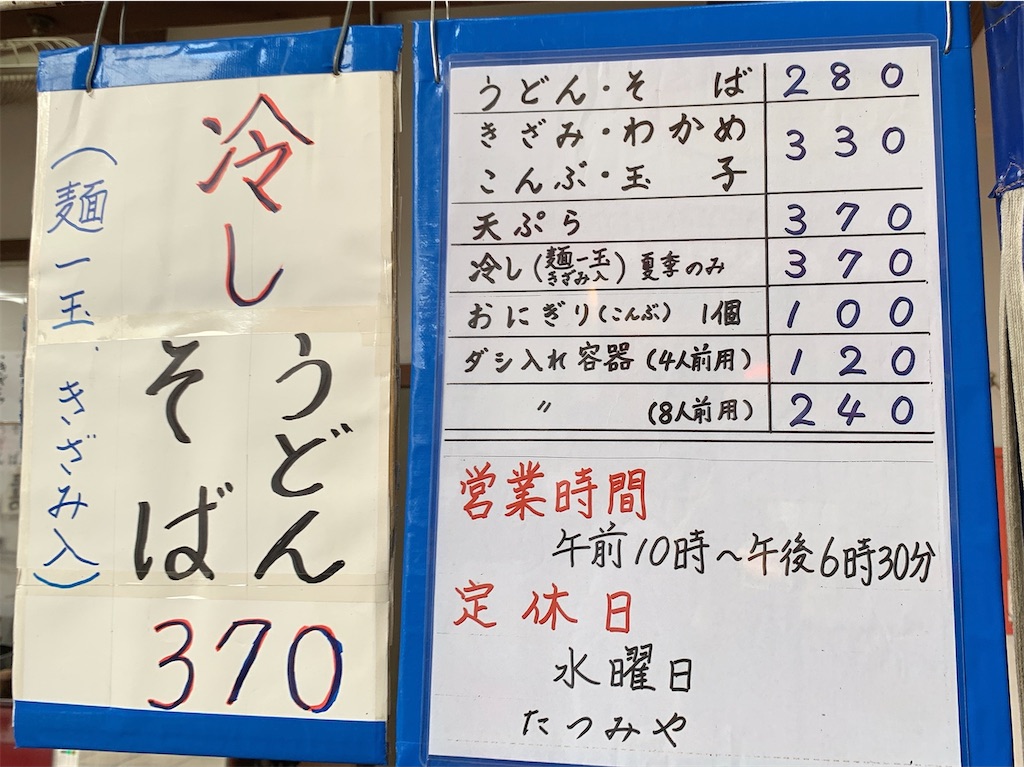 冷し
うどん
そば
370
(麺一玉、きざみ入)
うどん・そば 280
きざみ・わかめ
こんぶ・玉子 330
天ぷら 370
冷し(麺一玉きざみ入)夏季のみ 370
おにぎり(こんぶ) 1個 100
ダシ入れ容器(4人前用) 120
〃 (8人前用) 240
営業時間
午前10時~午後6時30分
定休日
水曜日
たつみや